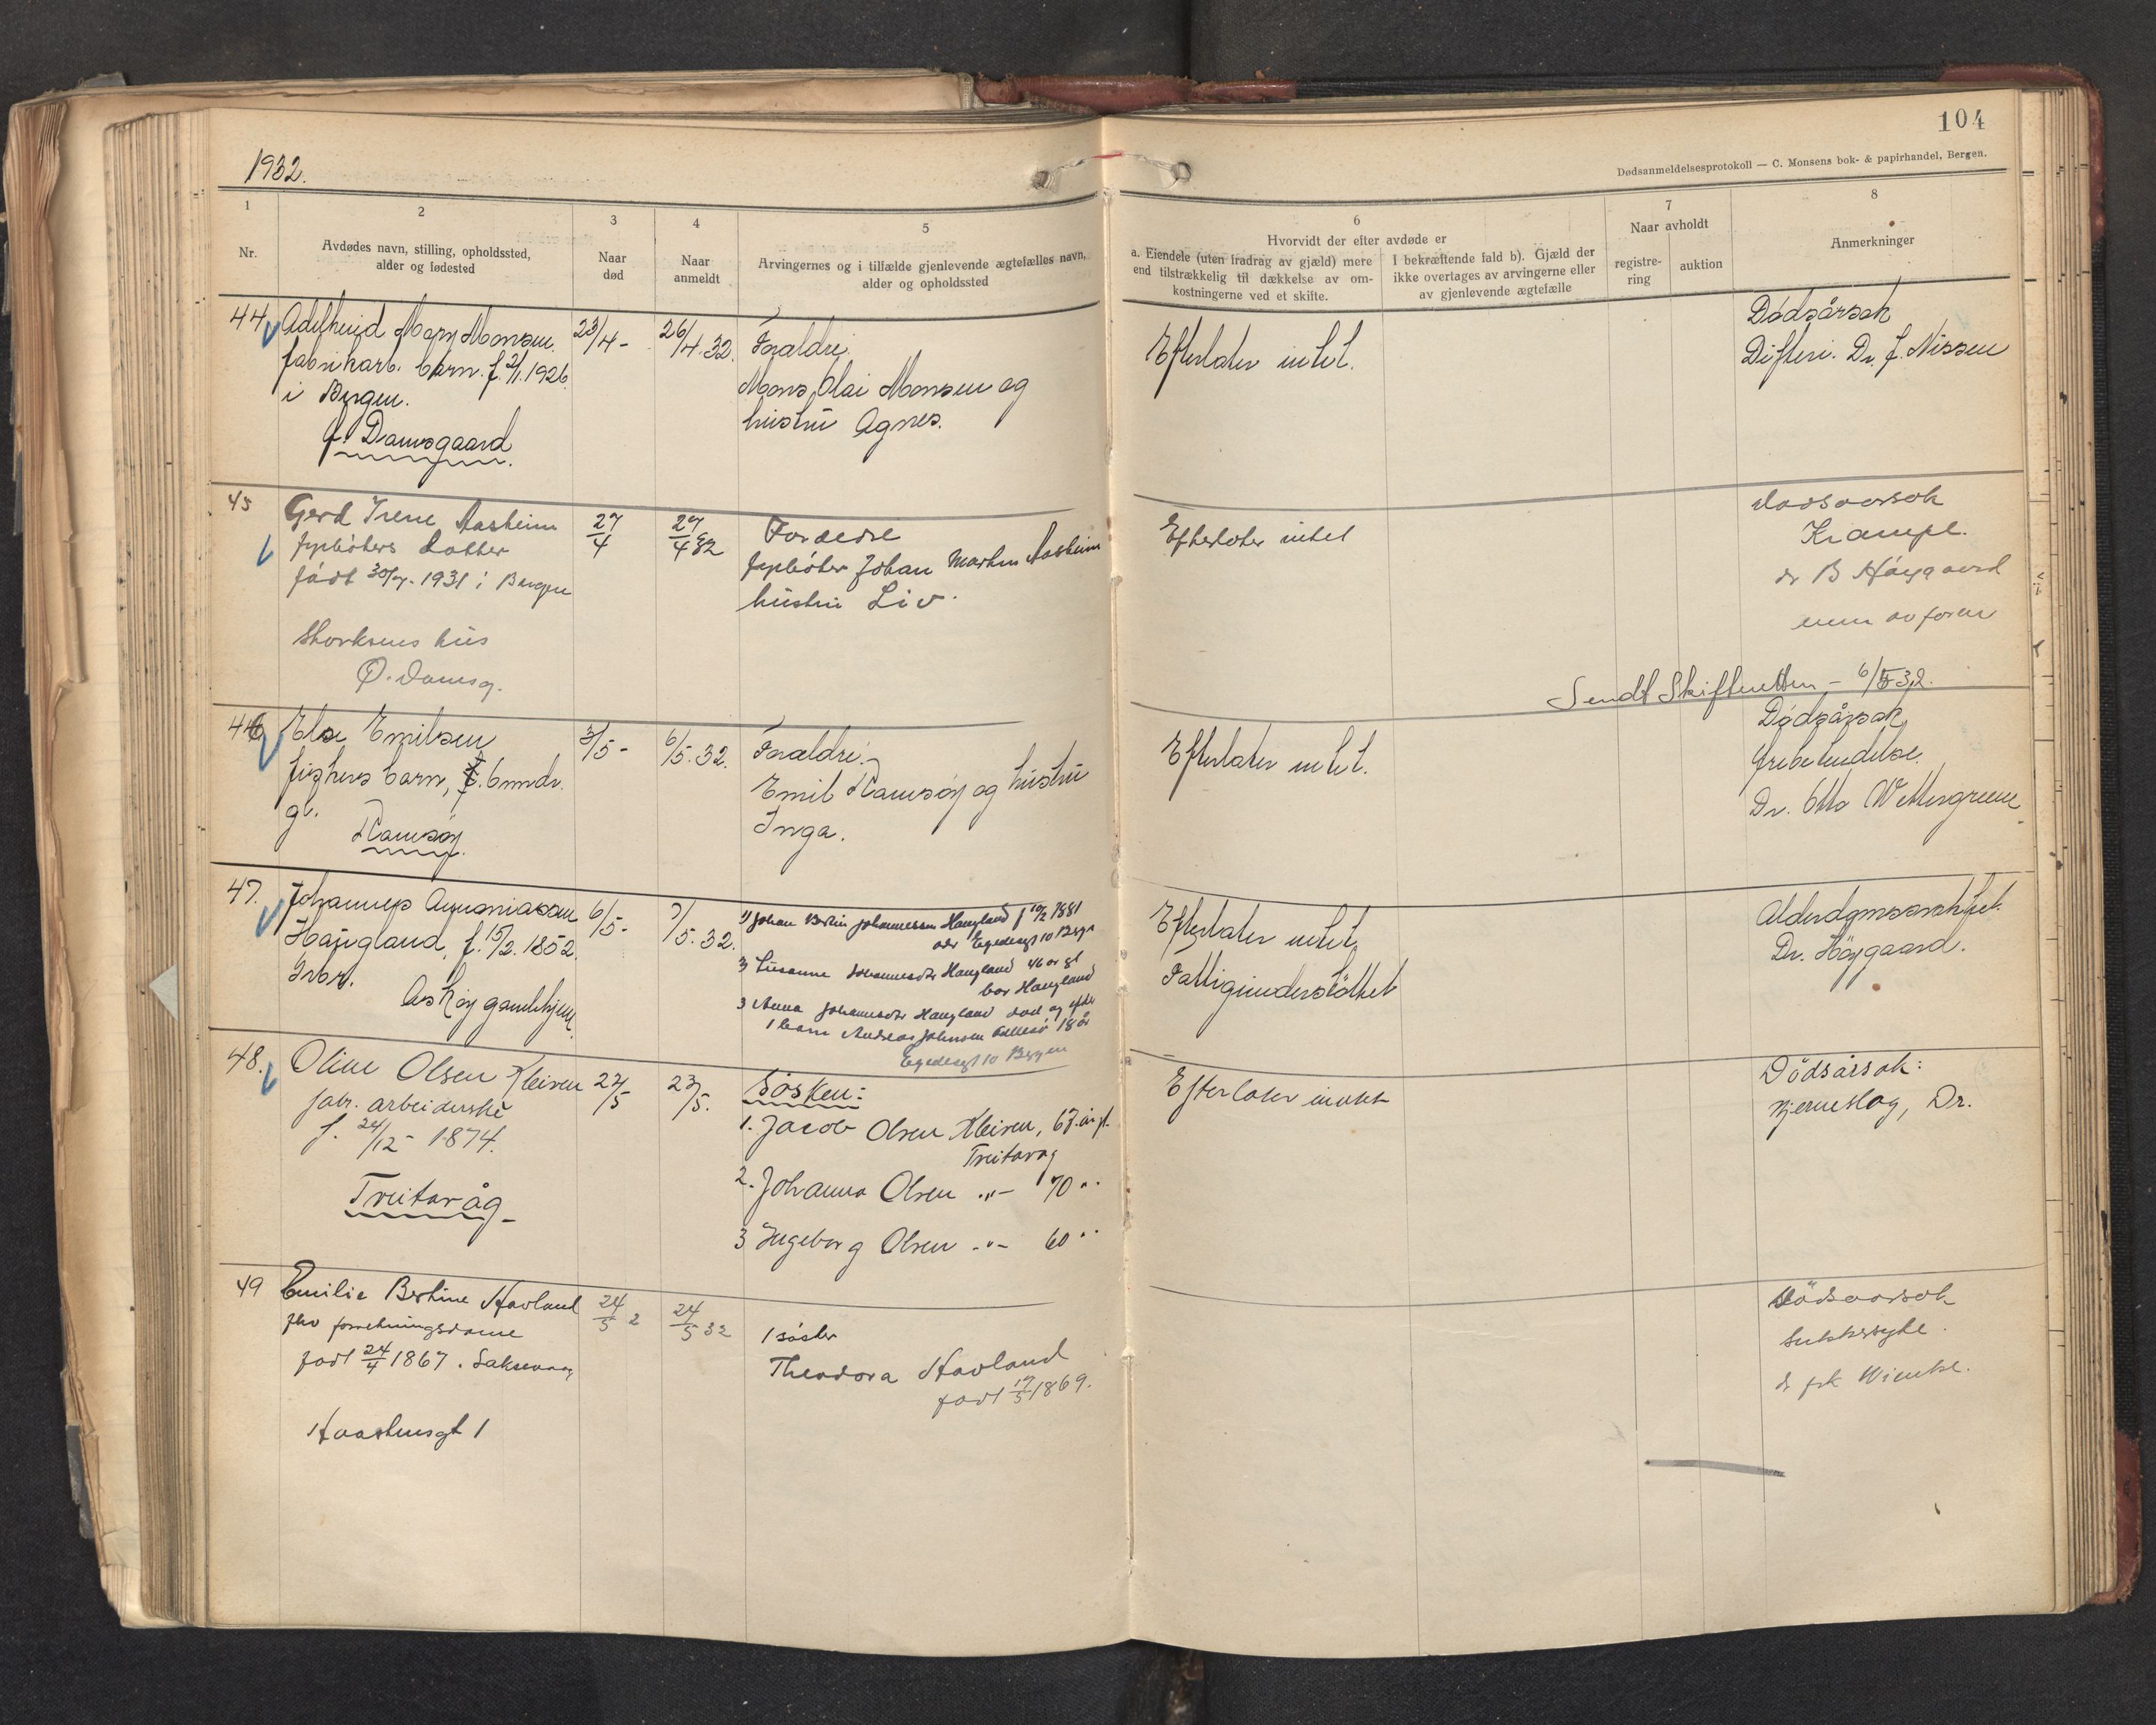 1932.
104
Dødsanmeldelsesprotokoll — C. Monsens bok- & papirhandel, Bergen.
1
Nr.
2
Avdødes navn, stilling, opholdssted,
alder og fødested
3
Naar
død
4
Naar
anmeldt
5
Arvingernes og i tilfælde gjenlevende ægtefælles navn,
alder og opholdssted
6
Hvorvidt der efter avdøde er
a. Eiendele (uten fradrag av gjæld) mere
end tilstrækkelig til dækkelse av om-
kostningerne ved et skifte.
I bekræftende fald b). Gjæld der
ikke overtages av arvingerne eller
av gjenlevende ægtefælle
7
Naar avholdt
registre-
ring
auktion
8
Anmerkninger
44
Adelheid Mary Monsen.
fabrikarb. barn. f. 2/1. 1926
i Bergen.
Damsgaard
23/4 -
26/4. 32.
Foreldre:
Mons Olai Monsen og
hustru Agnes.
Efterlater intet.
Dødsårsak
Difteri. Dr. J. Nissen
45
Gerd Irene Aasheim
datter
født 30/7. 1931 i Bergen
Storksens hus
Ø. Damsg.
27/4
27/4 32
Foreldre
Johan Martin Aasheim
hustru Liv.
Efterlater intet
Dødsaarsak
Krampe.
dr B Høygaard
av foran
Sendt Skifteretten - 6/5 32.
46
Else Emilsen
fiskers barn, 6 mndr.
gl.
Ramsøy
3/5 -
6/5. 32.
Foreldre:
Emil Ramsøy og hustru
Inga.
Efterlater intet.
Dødsårsak
Dr. Otto Wettergreen
47.
Johannes Annaniassen
Haugland, f. 15/2. 1852.
Askøy gamlehjem
6/5 -
7/5. 32.
1) Johan Bertin Johannessen Haugland f 10/2 1881
adr Egedesgt 10 Bergn
Susanne Johannesdtr Haugland 46 år gl
bor Haugland
3 Anna Johannesdtr Haugland død og efter
1 barn Andreas Johnsen 18 år
Egedesgt 10 Bergen
Efterlater intet,
Fattigunderstøttet
Alderdomssvakhet.
Dr. Høygaard.
48.
Oline Olsen Kleiven
fabr. arbeiderske
f. 24/12 - 1874.
Treitavåg -
22/5
23/5.
Søsken:
1. Jacob Olsen Kleiven, 67 år gl.
Treitavåg
2. Johanna Olsen -"- 70 "
3 Ingeborg Olsen -"- 60 "
Efterlater intet
Dödsårsak:
Hjerneslag, Dr.
49
Emilie Bertine Havland
fhv forretningsdame
født 24/4 1867. Laksevaag
Haastensgt 1
24/5 2
24/5 32
1 søster
Theodora Havland
født 17/5 1869.
Dödsaarsak
Sukkersyke.